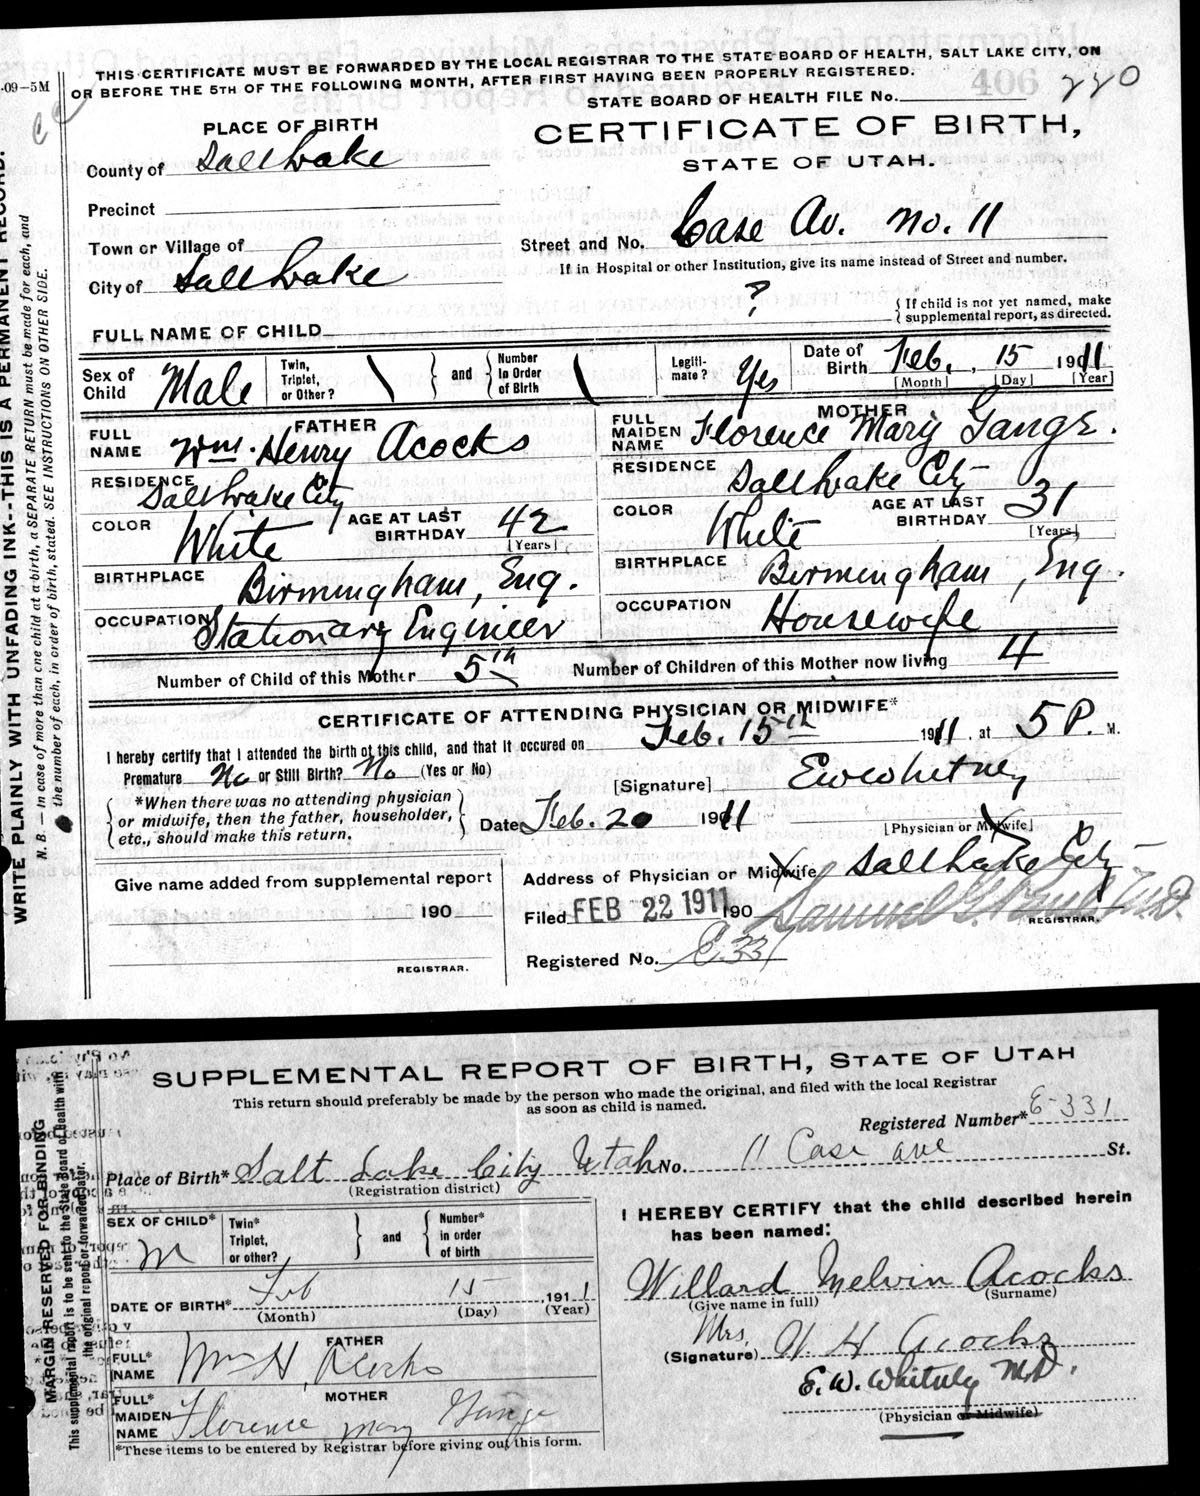 THIS CERTIFICATE MUST BE FORWARDED BY THE LOCAL REGISTRAR TO THE STATE BOARD OF HEALTH, SALT LAKE CITY, ON
OR BEFORE THE 5TH OF THE FOLLOWING MONTH, AFTER FIRST HAVING BEEN PROPERLY REGISTERED.
-09-5M
STATE BOARD OF HEALTH FILE No. 406 220
PLACE OF BIRTH
CERTIFICATE OF BIRTH,
STATE OF UTAH.
County of Salt Lake
Precinct
Town or Village of
Street and No. Case Av. No. 11
If in Hospital or other Institution, give its name instead of Street and number.
City of Salt Lake
FULL NAME OF CHILD ? { If child is not yet named, make
supplemental report, as directed.
Sex of Child Male Twin, Triplet, or Other? \ } and { Number In Order of Birth \ Legiti-mate? Yes Date of Birth Feb. 15 1911
[Month] [Day] [Year]
FATHER
MOTHER
FULL NAME Wm. Henry Acocks
FULL MAIDEN NAME Florence Mary Gange.
RESIDENCE Salt Lake City
RESIDENCE Salt Lake City
COLOR White AGE AT LAST BIRTHDAY 42 [Years]
COLOR White AGE AT LAST BIRTHDAY 31 [Years]
BIRTHPLACE Birmingham, Eng.
BIRTHPLACE Birmingham, Eng.
OCCUPATION Stationary Engineer
OCCUPATION Housewife
Number of Child of this Mother 5th Number of Children of this Mother now living 4
CERTIFICATE OF ATTENDING PHYSICIAN OR MIDWIFE*
I hereby certify that I attended the birth of this child, and that it occured on Feb. 15th 1911, at 5 P. M.
Premature No or Still Birth? No (Yes or No)
[Signature] E W Whitney
[Physician or Midwife]
{ *When there was no attending physician
or midwife, then the father, householder,
etc., should make this return. }
Date Feb. 20 1911
Address of Physician or Midwife Salt Lake City
Give name added from supplemental report
190
REGISTRAR.
Filed FEB 22 1911 190
REGISTRAR.
Registered No. E 331
WRITE PLAINLY WITH UNFADING INK--THIS IS A PERMANENT RECORD.
N. B. — In case of more than one child at a birth, a SEPARATE RETURN must be made for each, and
the number of each, in order of birth, stated. SEE INSTRUCTIONS ON OTHER SIDE.
SUPPLEMENTAL REPORT OF BIRTH, STATE OF UTAH
This return should preferably be made by the person who made the original, and filed with the local Registrar
as soon as child is named.
Registered Number* E-331
Place of Birth* Salt Lake City Utah No. 11 Case ave St.
(Registration district)
SEX OF CHILD* M Twin* Triplet, or other? } and { Number* in order of birth
DATE OF BIRTH* Feb 15 1911
(Month) (Day) (Year)
FATHER
FULL* NAME Wm H. Acocks
MOTHER
FULL* MAIDEN NAME Florence Mary Gange
*These items to be entered by Registrar before giving out this form.
I HEREBY CERTIFY that the child described herein
has been named:
Willard Melvin Acocks
(Give name in full) (Surname)
(Signature) Mrs. W H Acocks
E. W. Whitney M.D.
(Physician or Midwife)
MARGIN RESERVED FOR BINDING
This supplemental report is to be sent to the State Board of Health with
the original report or forwarded later.